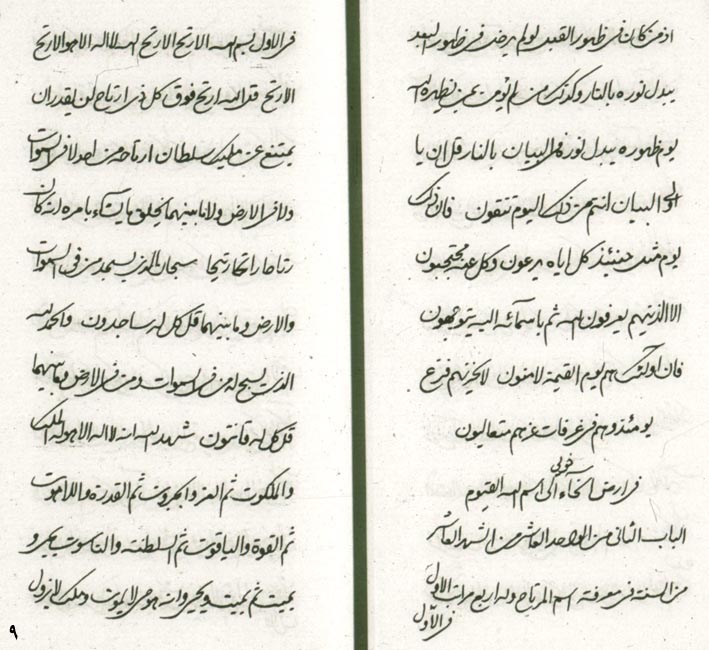 اذ من كان في ظهور القبل لو لم يرض في ظهور البعد
يبدل نوره بالنار وكذلك من لم يؤمن بمن يظهره الله
يوم ظهوره يبدل نوره في البيان بالنار قل ان يا
اولى البيان انتم من ذلك اليوم تتقون فان ذلك
يوم مثل حينئذ كل اياه يدعون وكل عنه محتجبون
الا الذينهم يعرفون الله ثم باسمائه اليه يتوجهون
فان اولئك هم يوم القيمة لامنون لا يحزنهم فزع
يومئذ وهم في غرفات عزهم متعاليون
خوئى
في ارض الخاء الى اسم الله القيوم
الباب الثاني من الواحد العاشر من الشهر العاشر
من السنة في معرفة اسم المرتاح وله اربع مراتب الاول
في الاول
في الاول بسم الله الارتح الارتح الله لا اله الا هو الارتح
الارتح قل الله ارتح فوق كل ذي ارتاح لن يقدر ان
يمتنع عن مليك سلطان ارتاحه من احد لا في السموات
ولا في الارض ولا ما بينهما يخلق ما يشاء بامره انه كان
رتاحا رتاحا رتيحا سبحان الذي يسجد له من في السموات
والارض وما بينهما قل كل له ساجدون والحمد لله
الذي يسبح له من في السموات ومن في الارض وما بينهما
قل كل له قانتون شهد الله انه لا اله الا هو له الملك
والملكوت ثم العز والجبروت ثم القدرة واللاهوت
ثم القوة والياقوت ثم السلطنة والناسوت يحيي و
يميت ثم يميت ويحيي وانه هو حي لا يموت وملك لا يزول
٩